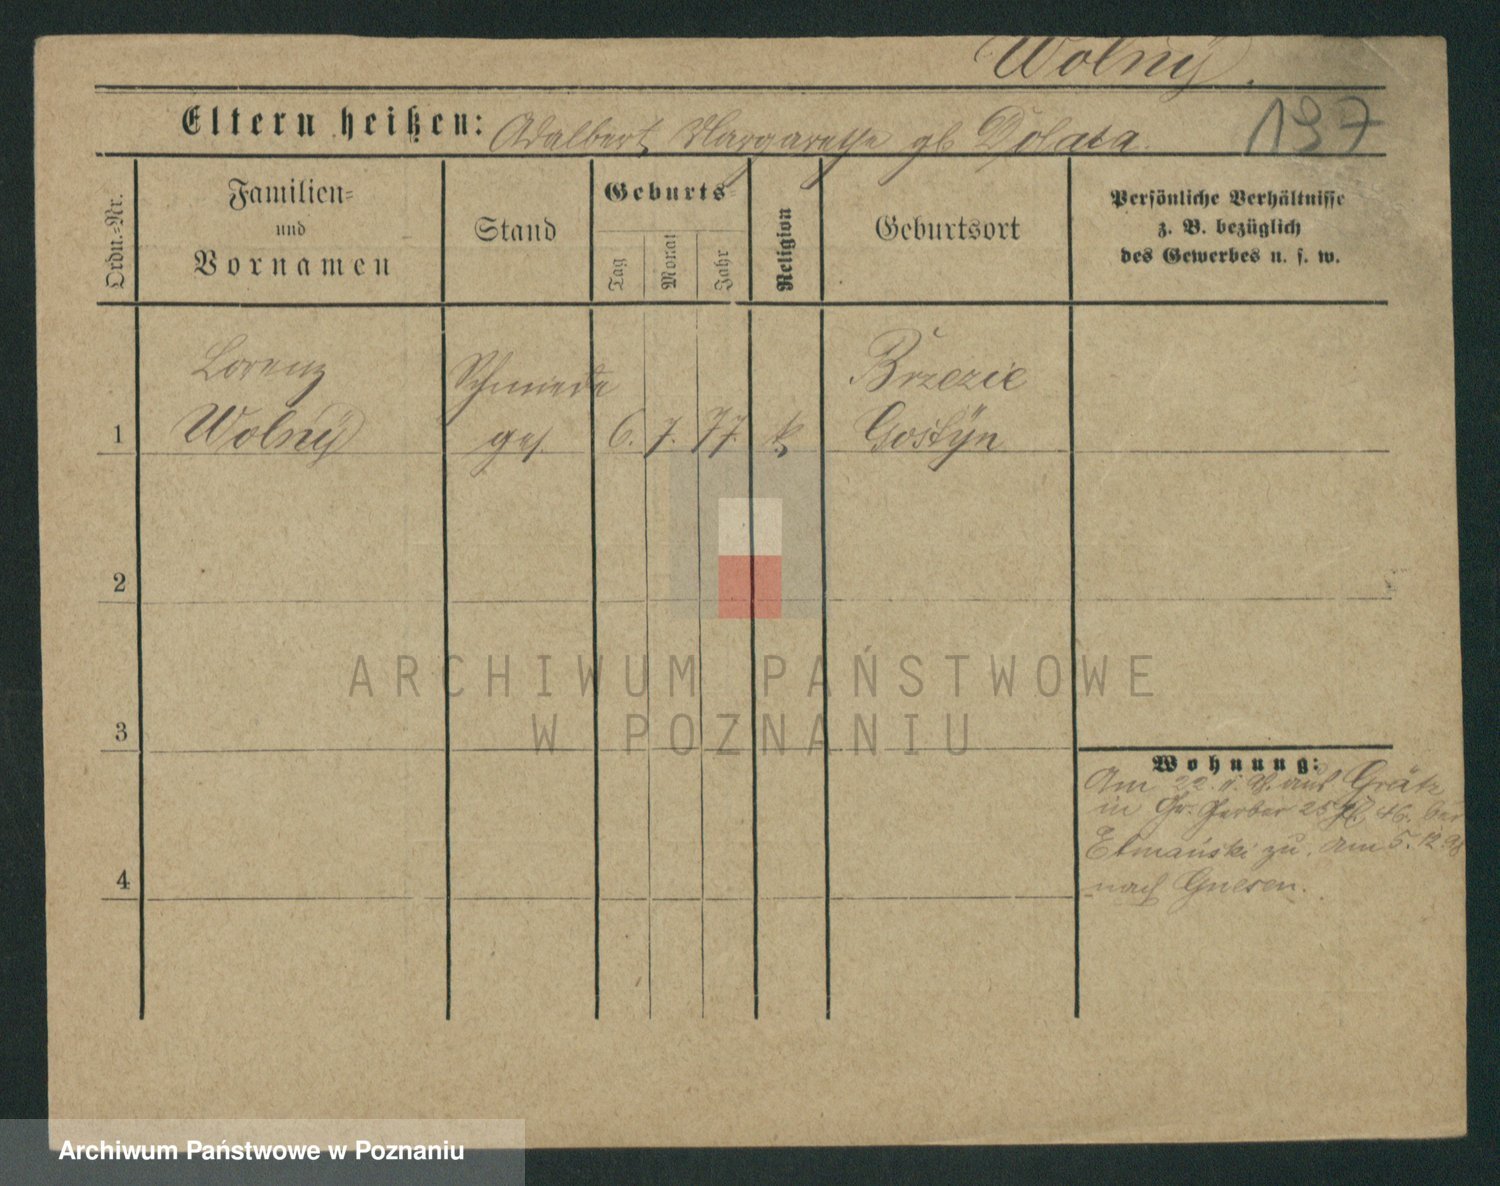 Wolny.
197
Eltern heißen: Adalbert, Margarethe gb Dolata.
Ordn.-Nr.
Familien-
und
Vornamen
Stand
Geburts-
Tag
Monat
Jahr
Religion
Geburtsort
Persönliche Verhältnisse
z. B. bezüglich
des Gewerbes u. s. w.
1
Lorenz
Wolny
Schmiede
ges.
6. 7. 77.
k
Brzezie
Gostyn
2
3
4
Wohnung:
Am 22. aus Grätz
in Gr. Gerber 25 bei
Etmański zu. Am 5.12.98
nach Gnesen.
ARCHIWUM PAŃSTWOWE
W POZNANIU
Archiwum Państwowe w Poznaniu